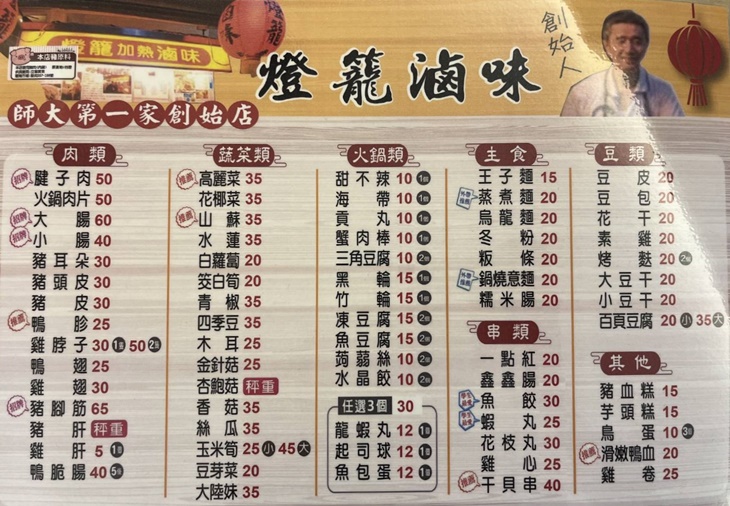 燈籠加熱滷味
本店種原料
燈籠滷味
創始人
師大第一家創始店
肉類
招牌 腱子肉 50
火鍋肉片 50
招牌 大腸 60
招牌 小腸 40
豬耳朵 30
豬頭皮 30
豬皮 30
推薦 鴨胗 25
雞脖子 30 1個 50 2個
鴨翅 25
雞翅 30
招牌 豬腳筋 65
豬肝 秤重
雞肝 5 1個
鴨脆腸 40 5個
蔬菜類
推薦 高麗菜 35
花椰菜 35
推薦 山蘇 35
水蓮 35
白蘿蔔 20
筊白筍 20
青椒 35
四季豆 35
木耳 25
金針菇 25
杏鮑菇 秤重
香菇 35
絲瓜 35
玉米筍 25 小 45 大
豆芽菜 20
大陸妹 35
火鍋類
甜不辣 10 1個
海帶 10 1個
貢丸 10 1個
蟹肉棒 10 1個
三角豆腐 10 1個
黑輪 15 1個
竹輪 15 1個
凍豆腐 15 2個
魚豆腐 15 2個
蒟蒻絲 10 2個
水晶餃 10 2個
任選3個 30
龍蝦丸 12 1個
起司球 12 1個
魚包蛋 12 1個
主食
王子麵 15
外帶推薦 蒸煮麵 20
烏龍麵 20
冬粉 20
粄條 20
外帶推薦 鍋燒意麵 20
糯米腸 20
串類
一點紅 20
鑫鑫腸 20
魚餃 30
蝦丸 25
花枝丸 30
雞心 25
推薦 干貝串 40
豆類
豆皮 20
豆包 20
花干 20
素雞 20
烤麩 20 2個
大豆干 20
小豆干 20
百頁豆腐 20 小 35 大
其他
豬血糕 15
芋頭糕 15
鳥蛋 10 3個
推薦 滑嫩鴨血 20
雞卷 25